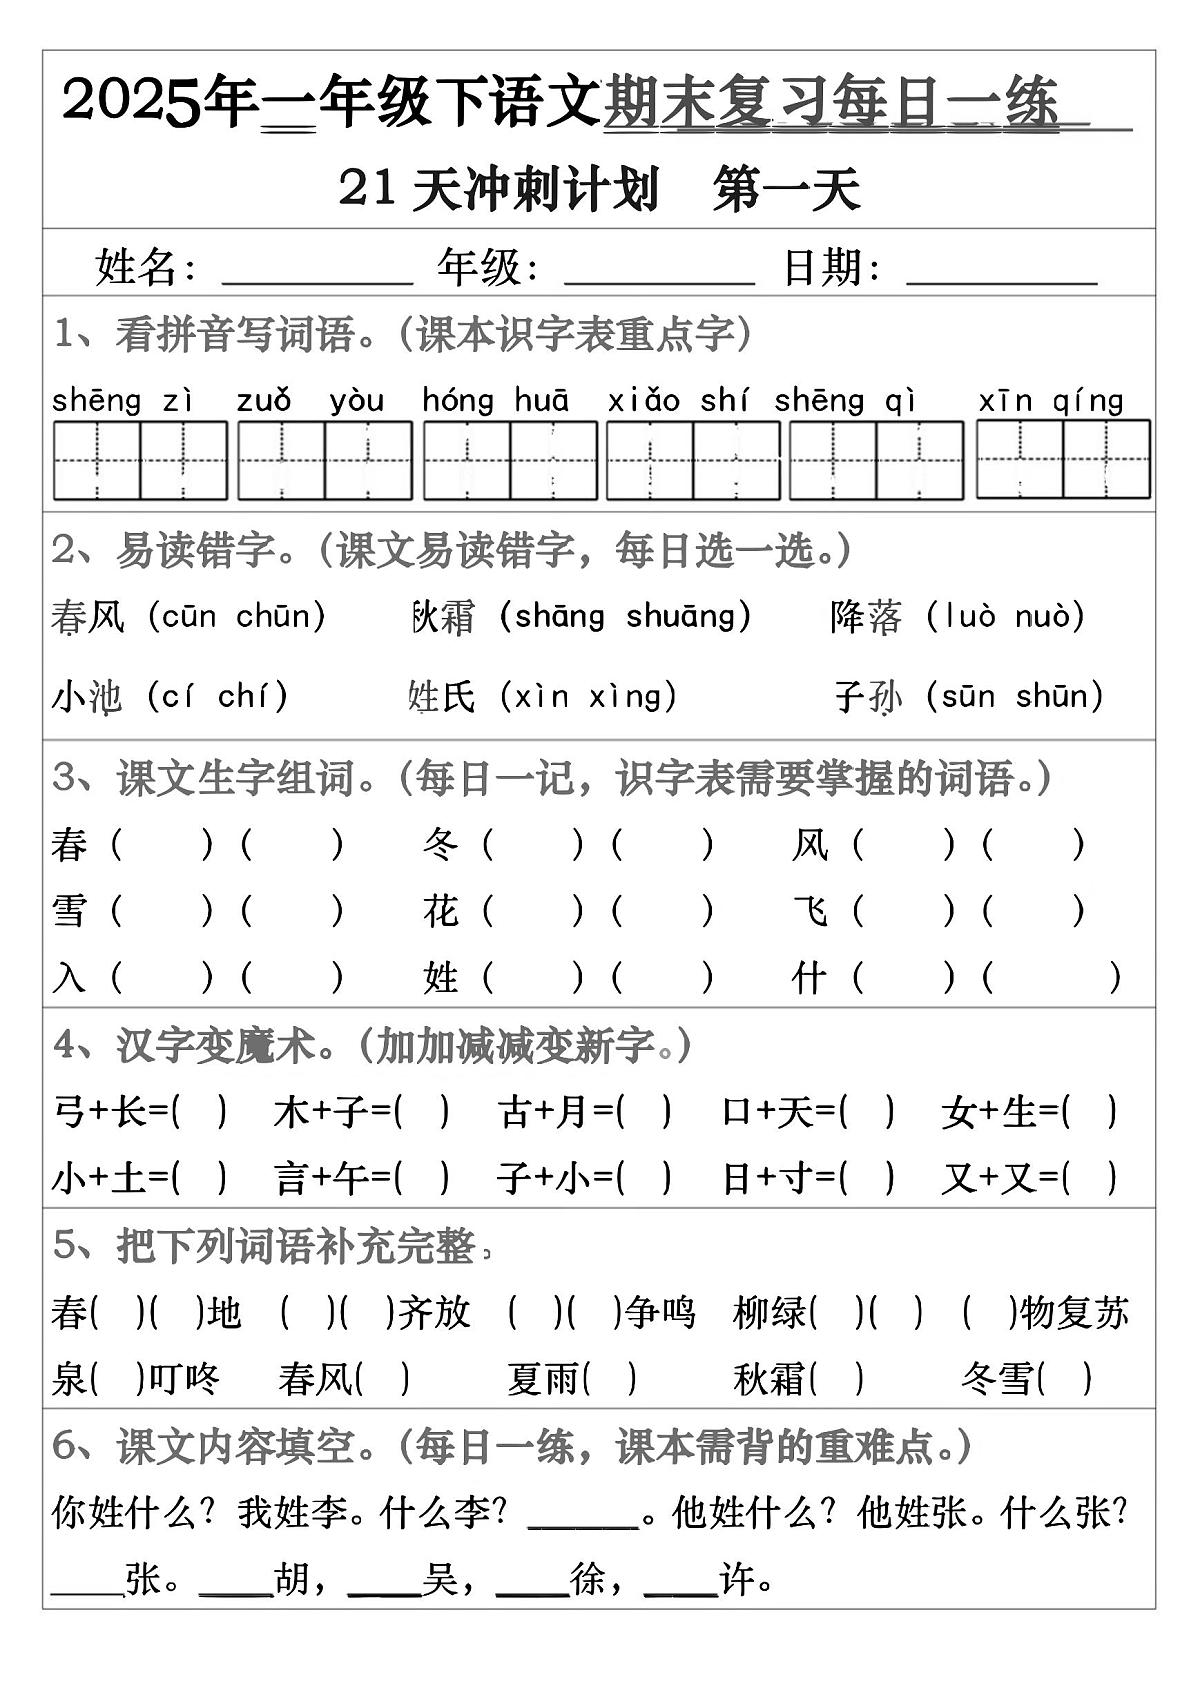 2025年一年级下语文期末复习每日一练
21天冲刺计划 第一天
姓名：________ 年级：________ 日期：________
1、看拼音写词语。（课本识字表重点字）
shēng zì zuǒ yòu hóng huā xiǎo shí shēng qì xīn qíng
2、易读错字。（课文易读错字，每日选一选。）
春风（cūn chūn） 秋霜（shāng shuāng） 降落（luò nuò）
小池（cí chí） 姓氏（xìn xìng） 子孙（sūn shūn）
3、课文生字组词。（每日一记，识字表需要掌握的词语。）
春（ ）（ ） 冬（ ）（ ） 风（ ）（ ）
雪（ ）（ ） 花（ ）（ ） 飞（ ）（ ）
入（ ）（ ） 姓（ ）（ ） 什（ ）（ ）
4、汉字变魔术。（加加减减变新字。）
弓+长=( ) 木+子=( ) 古+月=( ) 口+天=( ) 女+生=( )
小+土=( ) 言+午=( ) 子+小=( ) 日+寸=( ) 又+又=( )
5、把下列词语补充完整。
春( )( )地 ( )( )齐放 ( )( )争鸣 柳绿( )( ) ( )物复苏
泉( )叮咚 春风( ) 夏雨( ) 秋霜( ) 冬雪( )
6、课文内容填空。（每日一练，课本需背的重难点。）
你姓什么？我姓李。什么李？______。他姓什么？他姓张。什么张？
____张。____胡，____吴，____徐，____许。